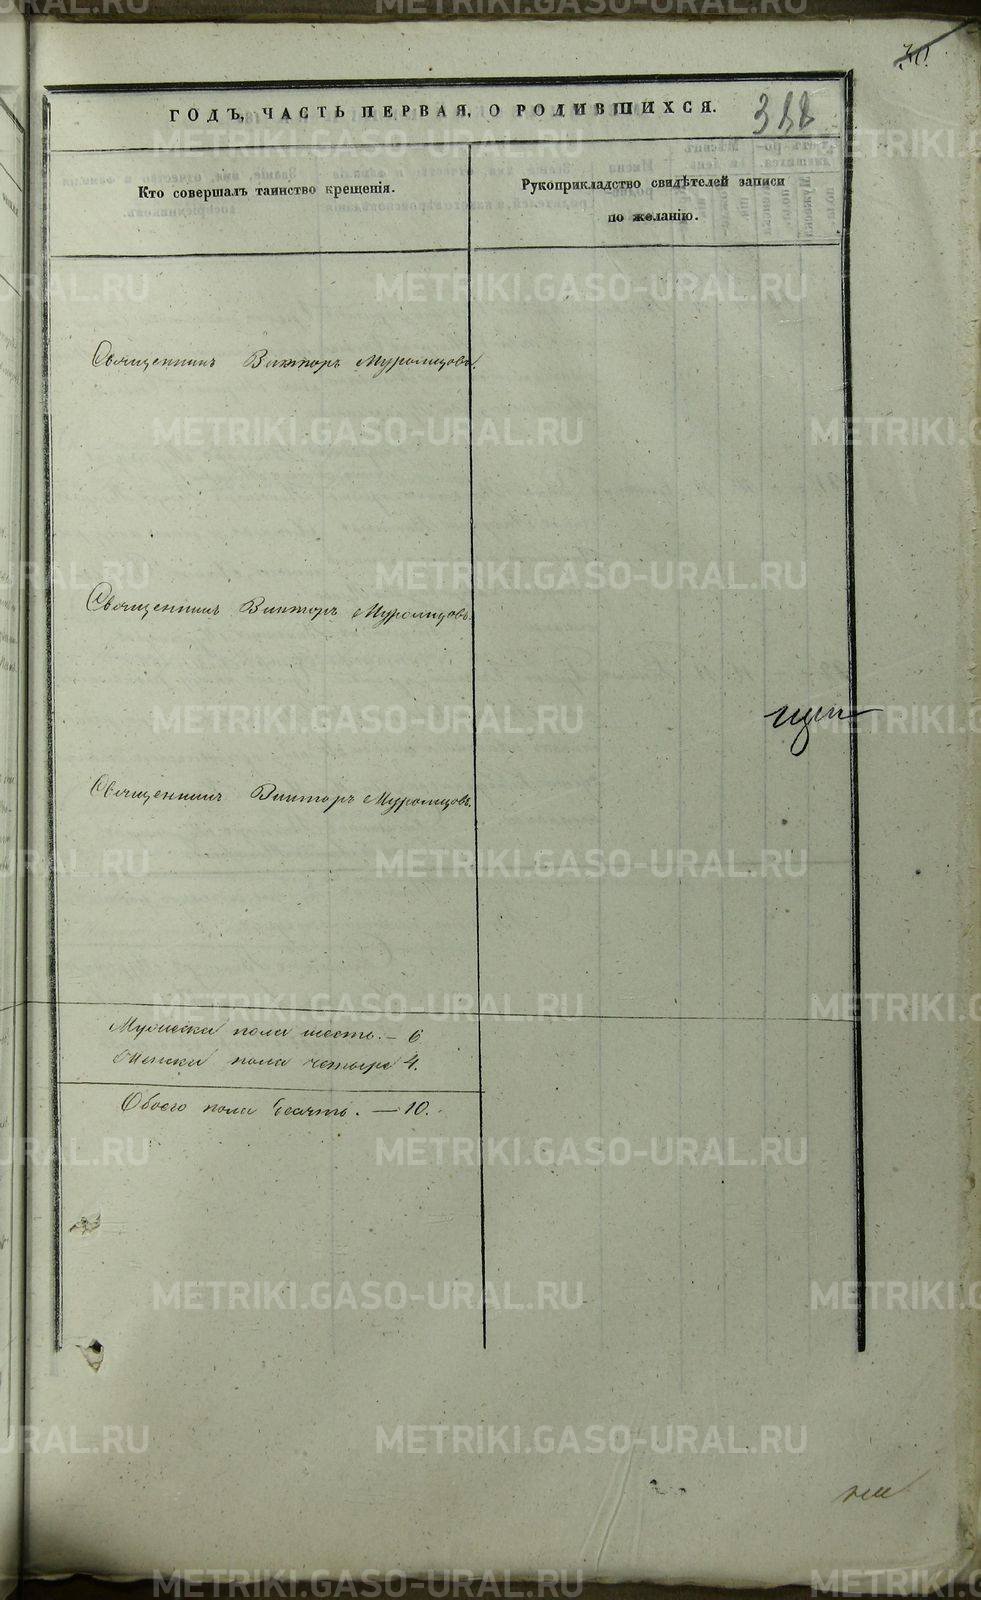 30.
ГОДЪ, ЧАСТЬ ПЕРВАЯ, О РОДИВШИХСЯ.
Кто совершалъ таинство крещенія.
Рукоприкладство свидѣтелей записи
по желанію.
Священникъ Викторъ Муромцовъ.
Священникъ Викторъ Муромцовъ.
Священникъ Викторъ Муромцовъ.
Мужеска пола шесть. — 6
Женска пола четыре 4.
Обоего пола десять. — 10.
METRIKI.GASO-URAL.RU